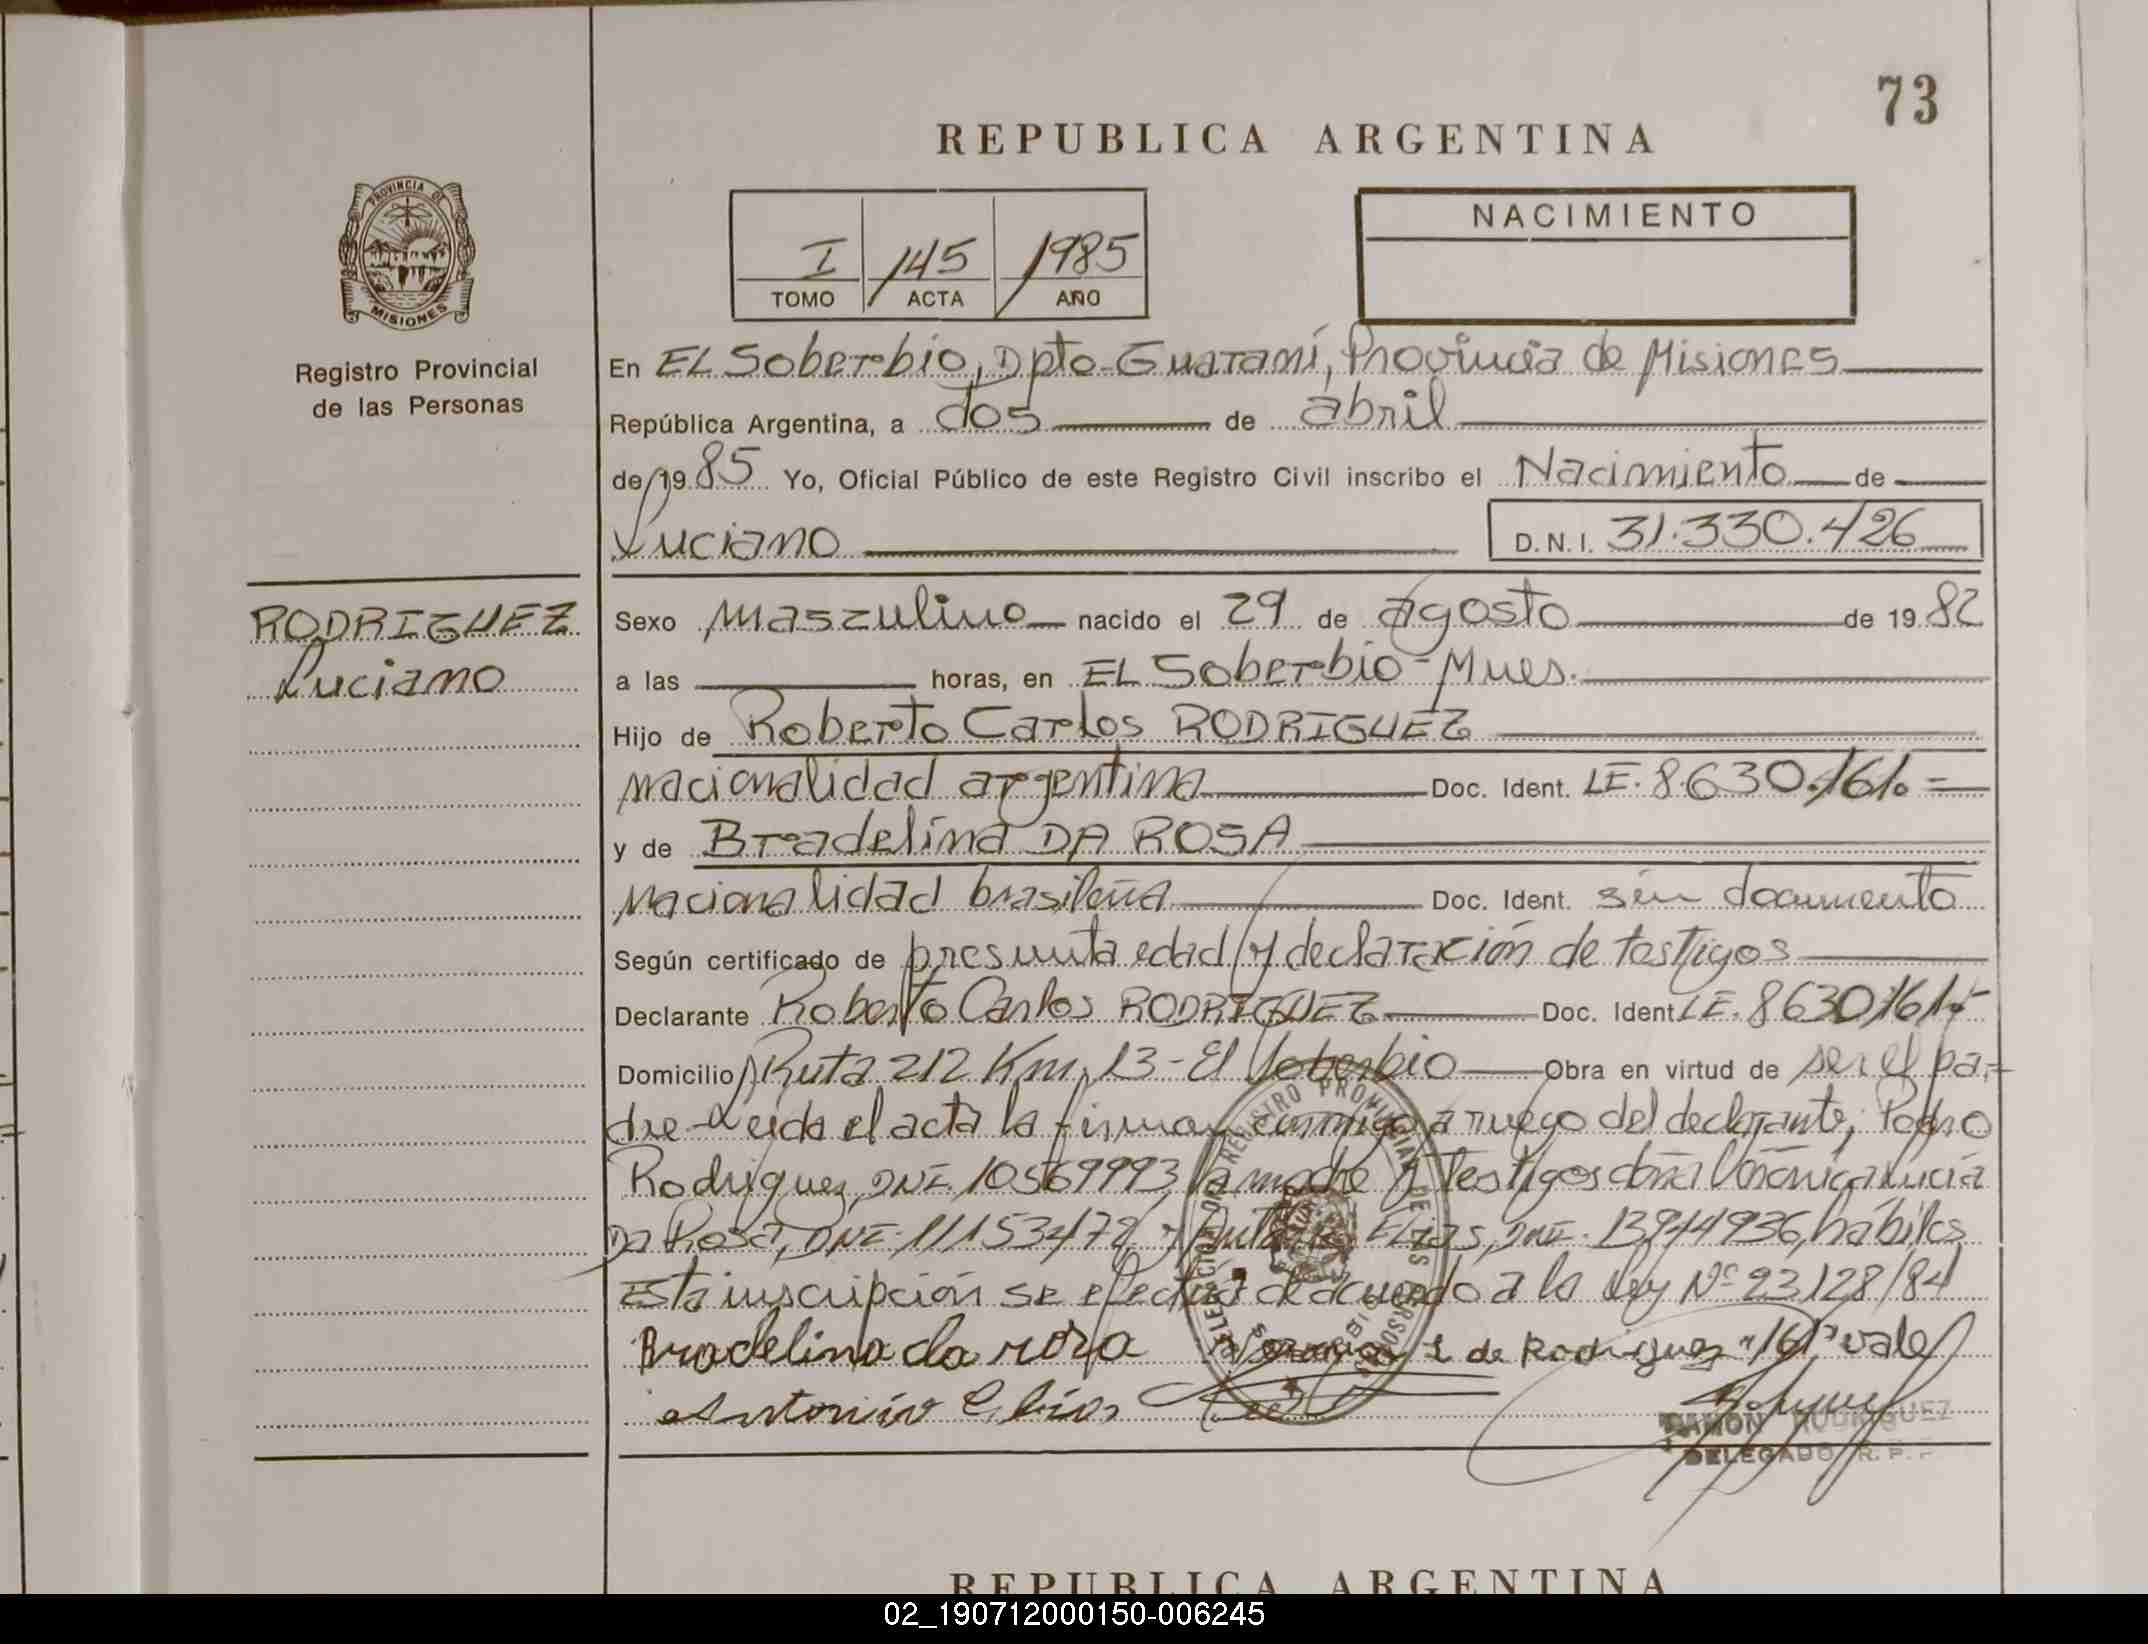 73
REPUBLICA ARGENTINA
PROVINCIA DE
MISIONES
Registro Provincial
de las Personas
I 145 1985
TOMO ACTA AÑO
NACIMIENTO
En EL Soberbio, Dpto-Guaraní, Provincia de Misiones
República Argentina, a dos de abril
de 1985 Yo, Oficial Público de este Registro Civil inscribo el Nacimiento de
Luciano D.N.I. 31.330.426
RODRIGUEZ
Luciano
Sexo masculino nacido el 29 de agosto de 1982
a las horas, en EL Soberbio-Mnes.
Hijo de Roberto Carlos RODRIGUEZ
nacionalidad argentina Doc. Ident. LE. 8.630.161.=
y de Bradelina DA ROSA
nacionalidad brasileña Doc. Ident. sin documento
Según certificado de presunta edad y declaración de testigos
Declarante Roberto Carlos RODRIGUEZ Doc. Ident. LE. 8630161.-
Domicilio Ruta 212 Km. 13-El Soberbio Obra en virtud de ser el pa-
dre-Leida el acta la firman conmigo a ruego del declarante, Pedro
Rodriguez, DNI. 10569993, la madre y Testigos doña Verónica Lucia
Da Rosa, DNI. 11153472 y Antonio Elias, DNI. 13944936, hábiles
Esta inscripción se efectúa de acuerdo a la Ley Nº 23128/84
Bradelina da rosa L de Rodriguez "161" vale
Antonio Elias
RAMON RODRIGUEZ
DELEGADO R. P.
REGISTRO PROVINCIAL DE LAS PERSONAS
REPUBLICA ARGENTINA
02_190712000150-006245